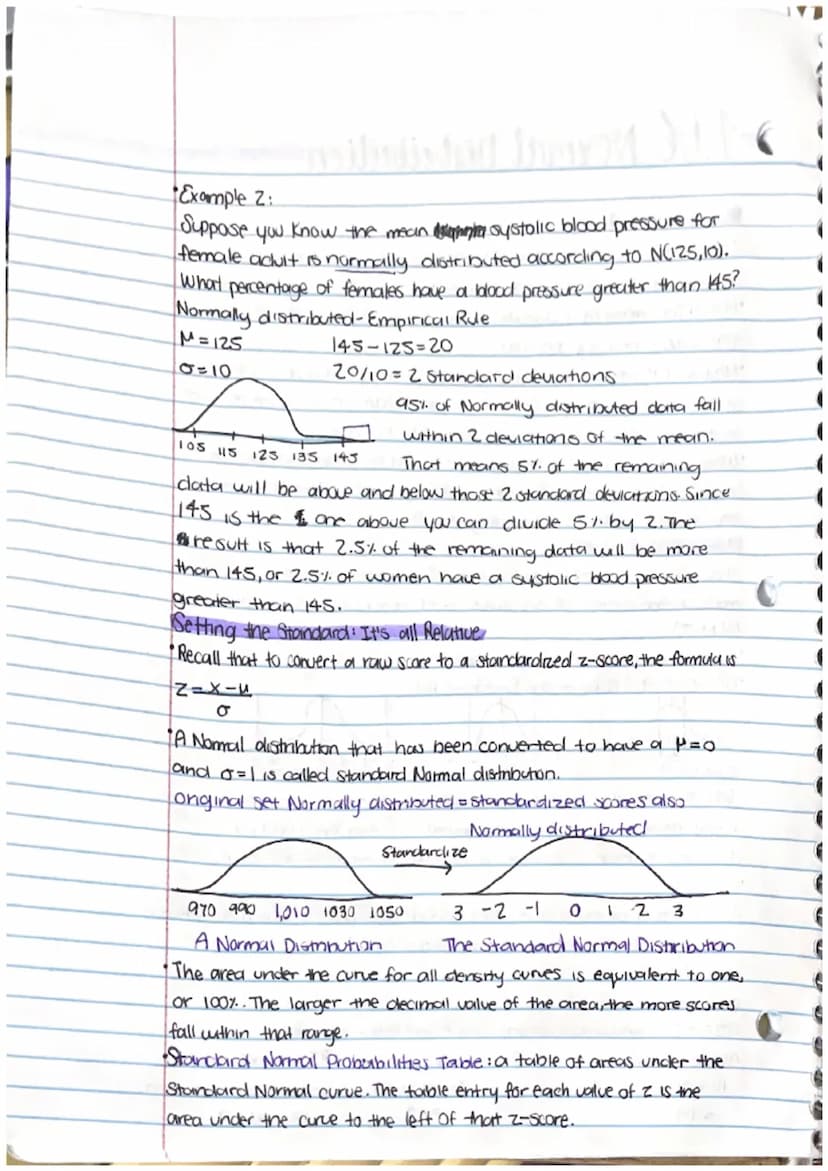 •Example 2:
Suppose you know the mean systolic blood pressure for
female adult is normally distributed according to N(125,10).
What percentage of females have a blood pressure greater than 145?
Normally distributed-Empirical Rule
μ=125 145-125=20
σ=10 20/10=2 standard deviations
95% of Normally distributed data fall
within 2 deviations of the mean.
105 115 125 135 145
That means 5% of the remaining
data will be above and below those 2 standard deviations. Since
145 is the one above you can divide 5% by 2. The
result is that 2.5% of the remaining data will be more
than 145, or 2.5% of women have a systolic blood pressure
greater than 145.
Setting the Standard: It's all Relative
•Recall that to convert a raw score to a standardized z-score, the formula is
z=x-μ
σ
•A Normal distribution that has been converted to have a μ=0
and σ=1 is called Standard Normal distribution.
original set Normally distributed = standardized scores also
Normally distributed
Standardize
970 990 1,010 1030 1050 3 -2 -1 0 1 2 3
A Normal Distribution The Standard Normal Distribution
•The area under the curve for all density curves is equivalent to one,
or 100%. The larger the decimal value of the area, the more scores
fall within that range.
•Standard Normal Probabilities Table: a table of areas under the
Standard Normal curve. The table entry for each value of z is the
area under the curve to the left of that z-score.